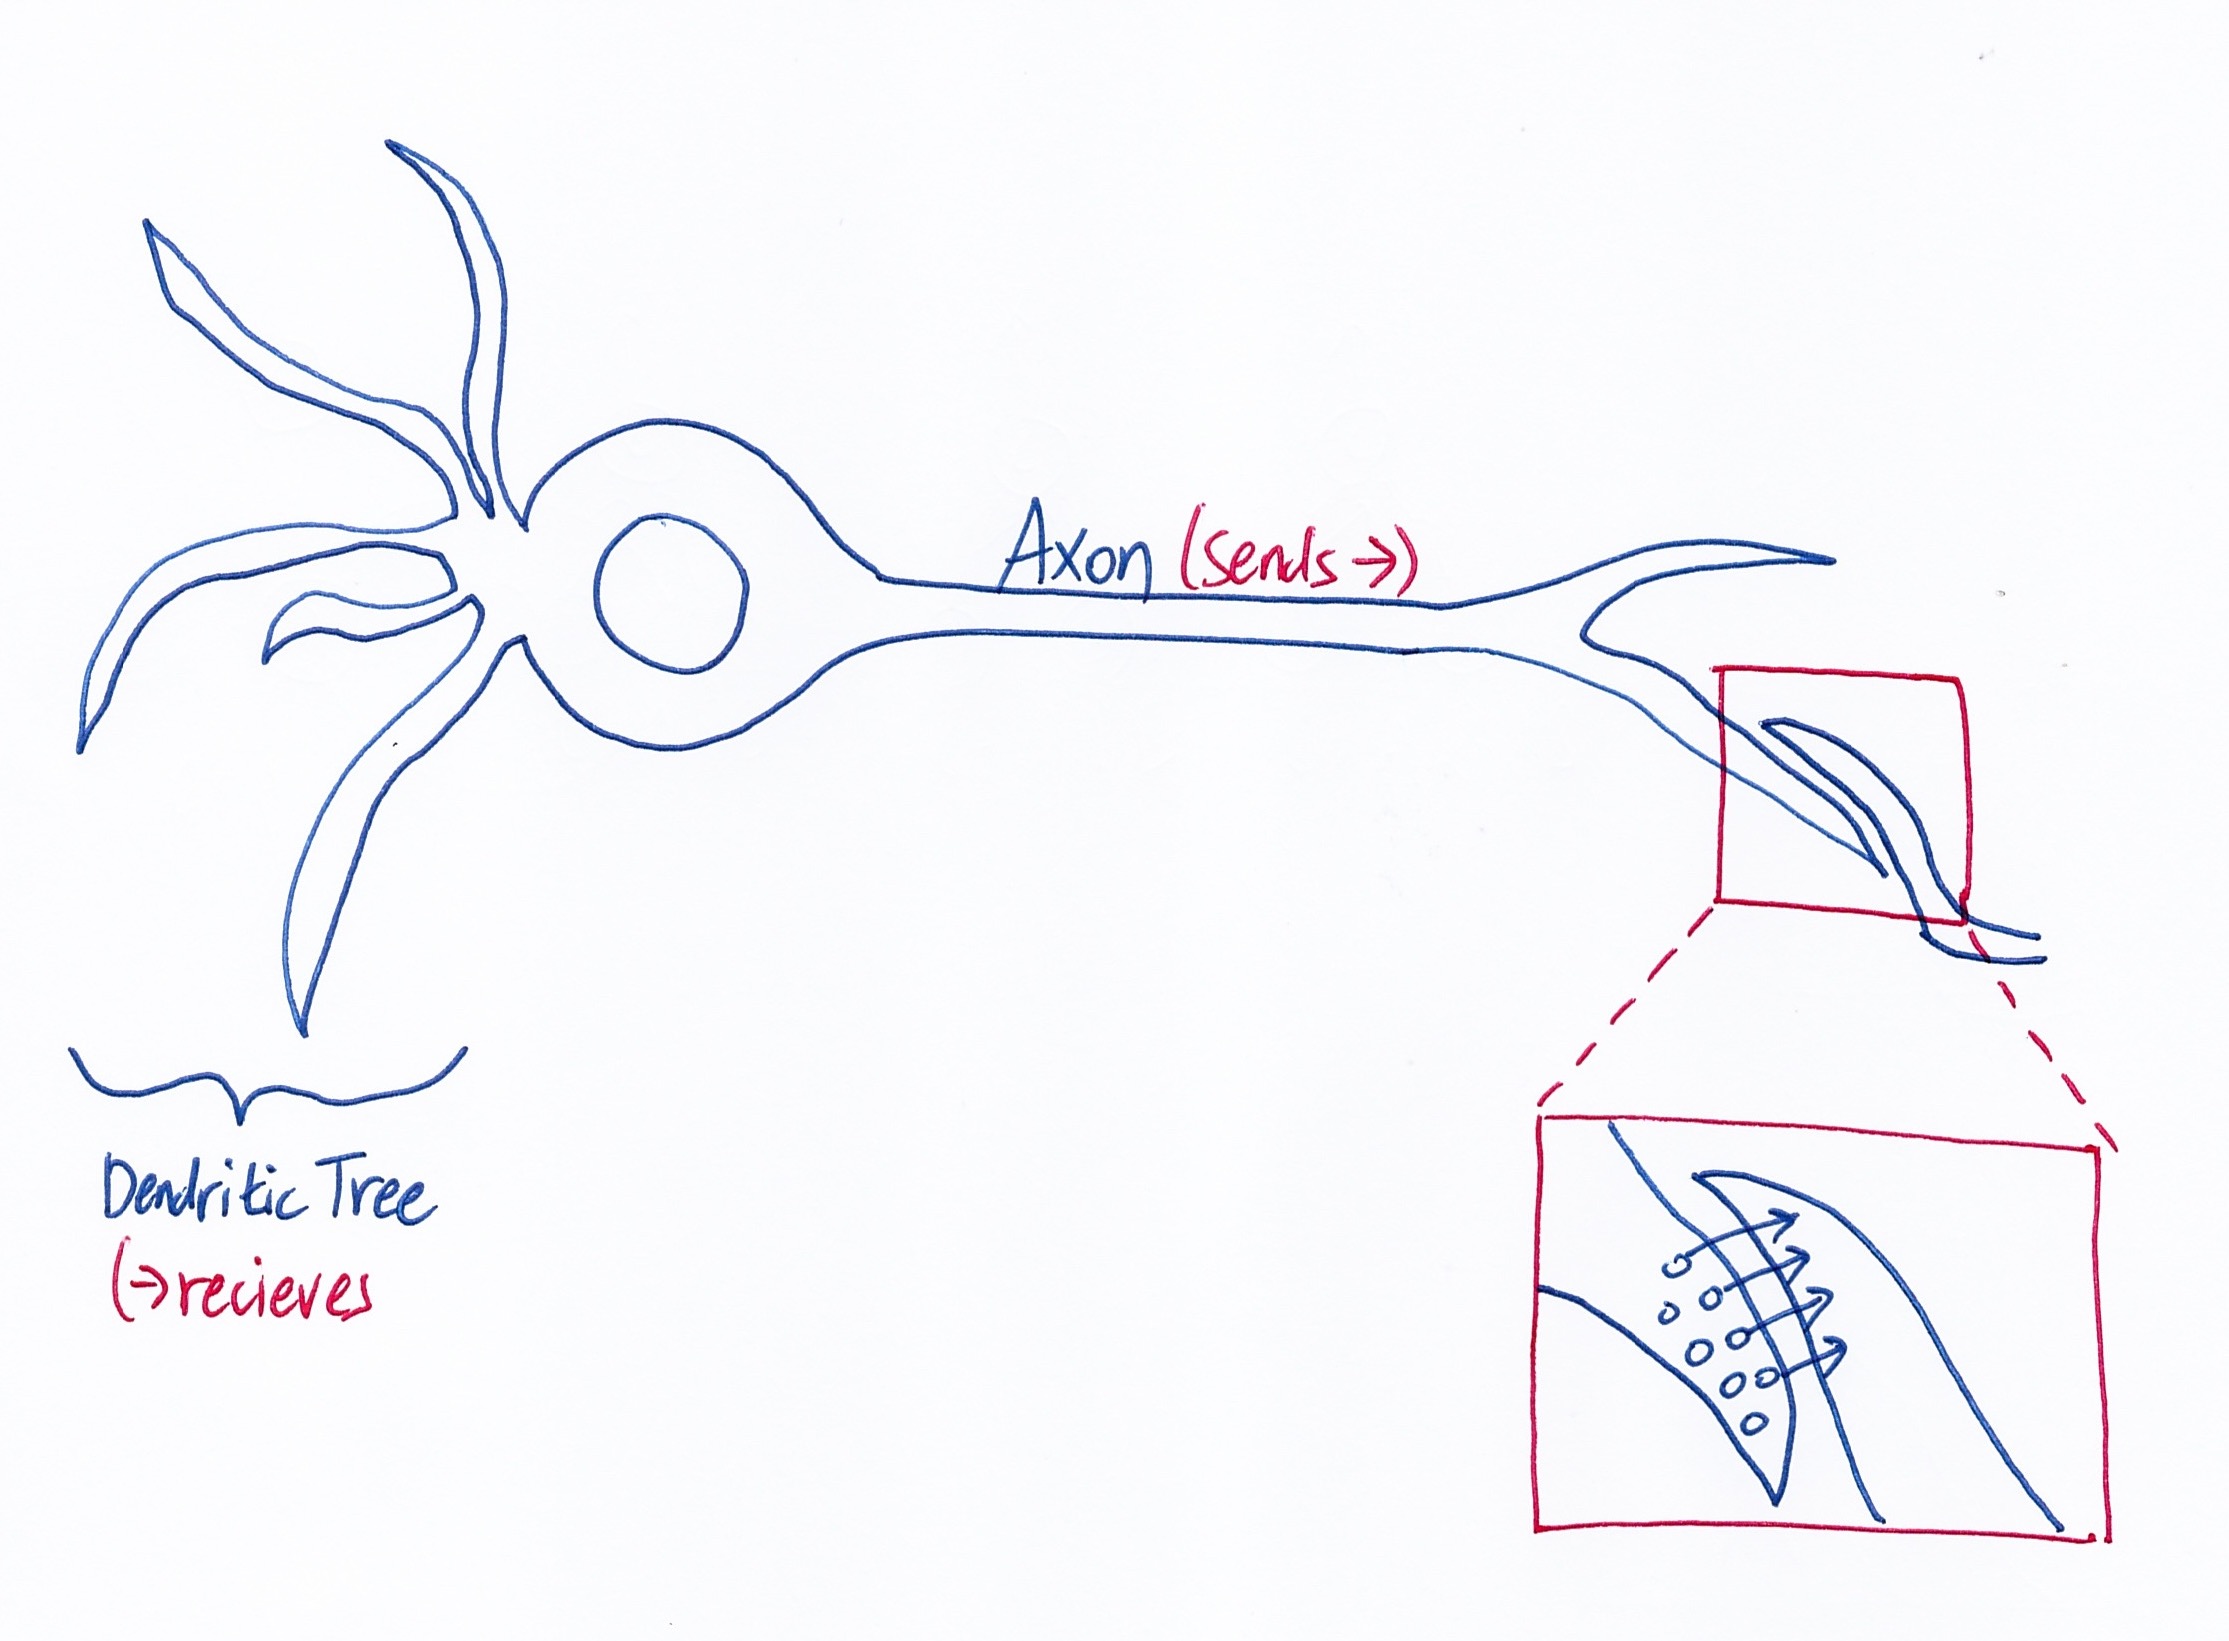 Axon (sends →)
Dendritic Tree
(→ recieves